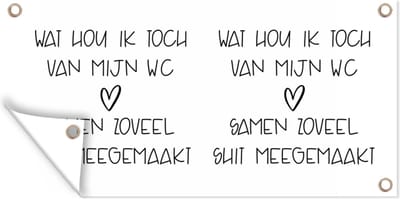 WAT HOU IK TOCH
VAN MIJN WC
EN ZOVEEL
MEEGEMAAKT
WAT HOU IK TOCH
VAN MIJN WC
SAMEN ZOVEEL
SHIT MEEGEMAAKT